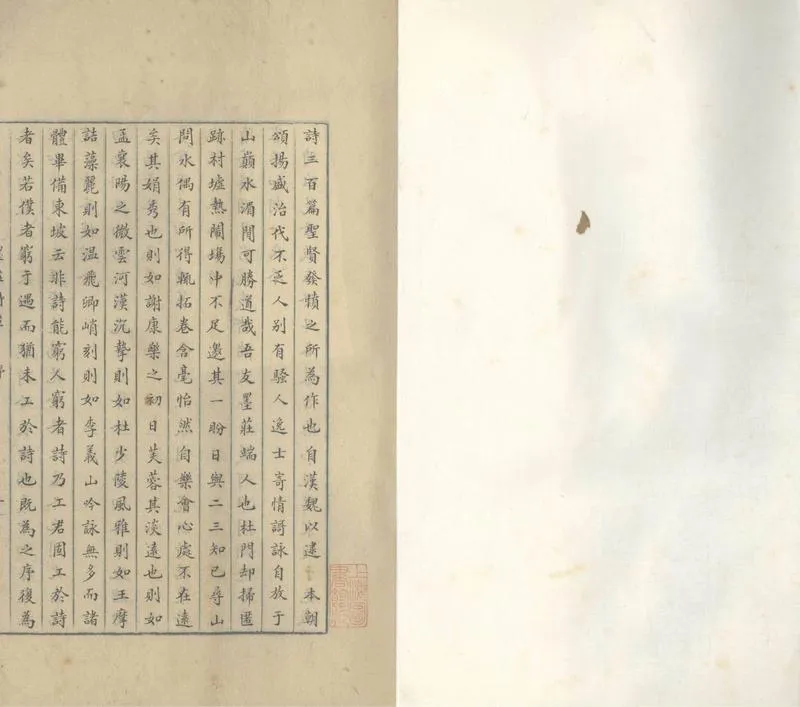 詩三百篇聖賢發憤之所為作也自漢魏以逮本朝
頌揚盛治代不乏人別有騷人逸士寄情謌詠自放于
山巔水湄間可勝道哉吾友墨莊端人也杜門却掃匿
跡村墟熱鬧場中不足邀其一盼日與二三知已尋山
問水偶有所得輒拓卷含毫怡然自樂會心處不在遠
矣其娟秀也則如謝康樂之初日芙蓉其淡遠也則如
孟襄陽之微雲河漢沉摯則如杜少陵風雅則如王摩
詰藻麗則如温飛卿峭刻則如李義山吟詠無多而諸
體畢備東坡云非詩能窮人窮者詩乃工君固工於詩
者矣若僕者窮于遇而猶未工於詩也既為之序復為